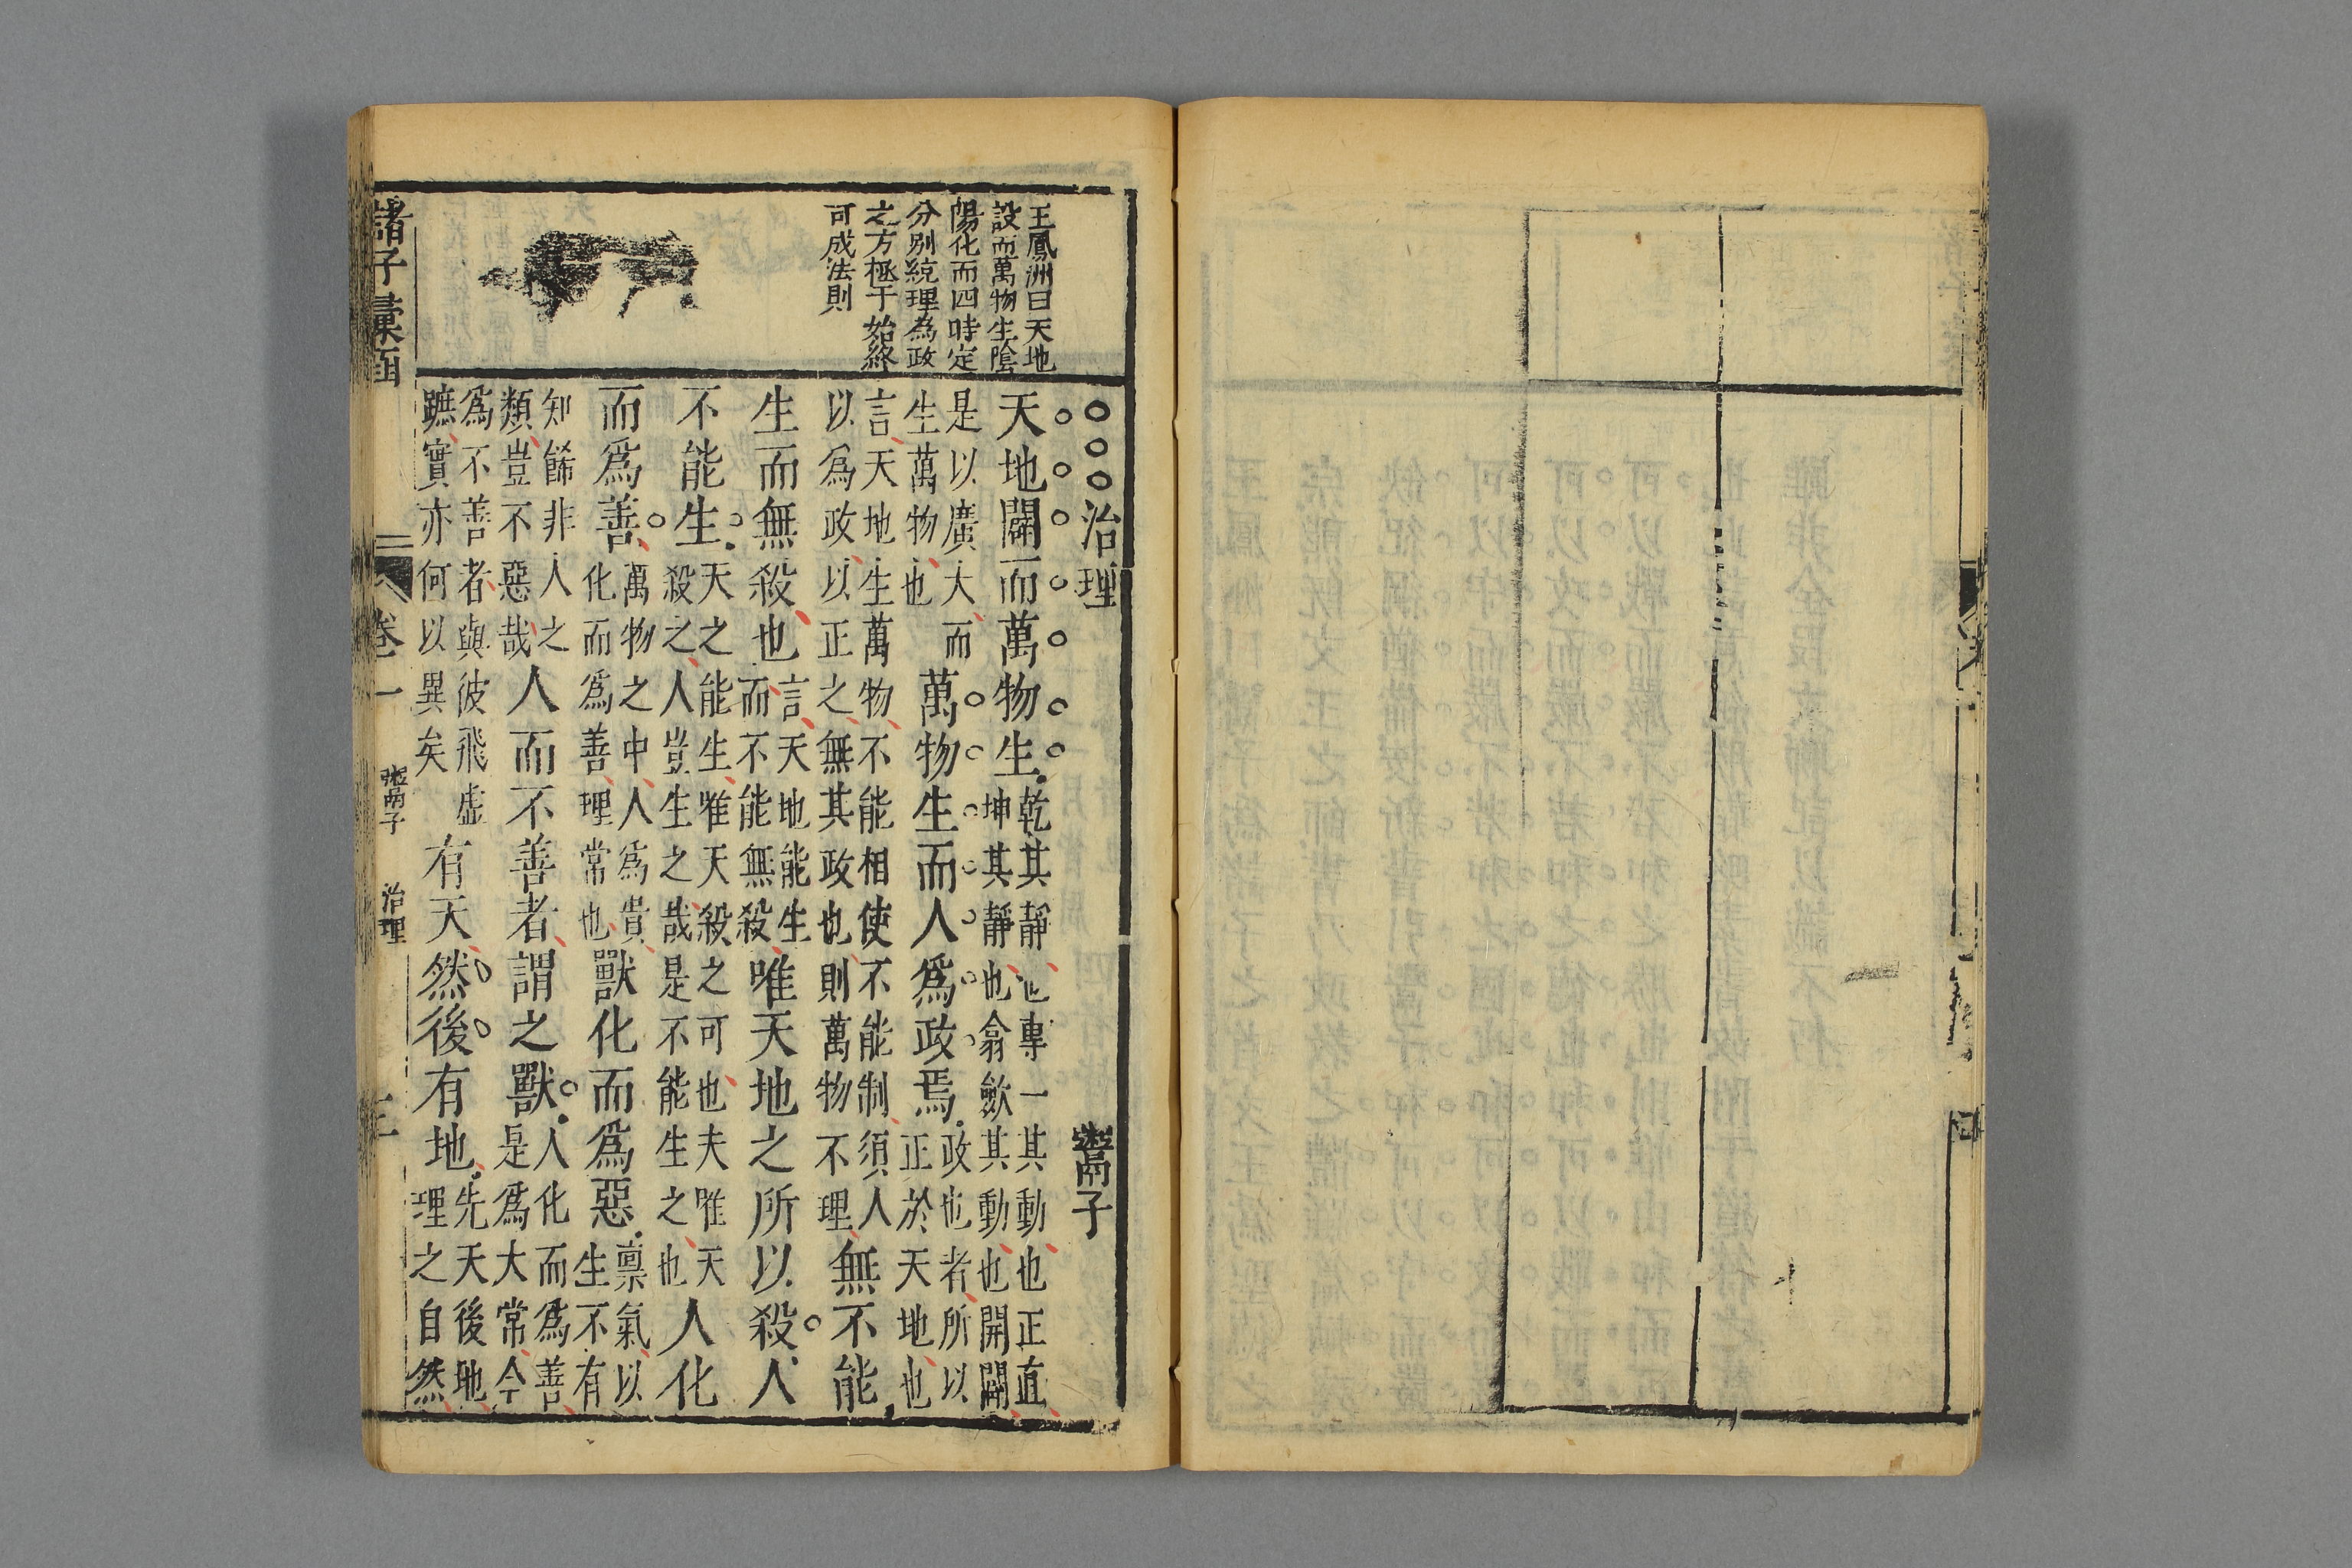 王鳳洲曰天地
設而萬物生陰
陽化而四時定
分别統理為政
之方極于始終
可成法則
○○○治理 鬻子
天地闢而萬物生乾其靜也專一其動也正直坤其靜也翕歛其動也開闢
是以廣大而生萬物也萬物生而人爲政焉政也者所以正於天地也
言天地生萬物不能相使不能制須人以爲政以正之無其政也則萬物不理無不能
生而無殺也言天地能生而不能無殺唯天地之所以殺人
不能生天之能生唯天殺之可也夫唯天殺之人豈生之哉是不能生之也人化
而爲善萬物之中人爲貴化而爲善理常也獸化而爲惡禀氣以生不有
知餙非人之類豈不惡哉人而不善者謂之獸人化而爲善是爲大常今
爲不善者與彼飛虛蹠實亦何以異矣有天然後有地先天後地理之自然
諸子彙函 卷一 鬻子 治理 三